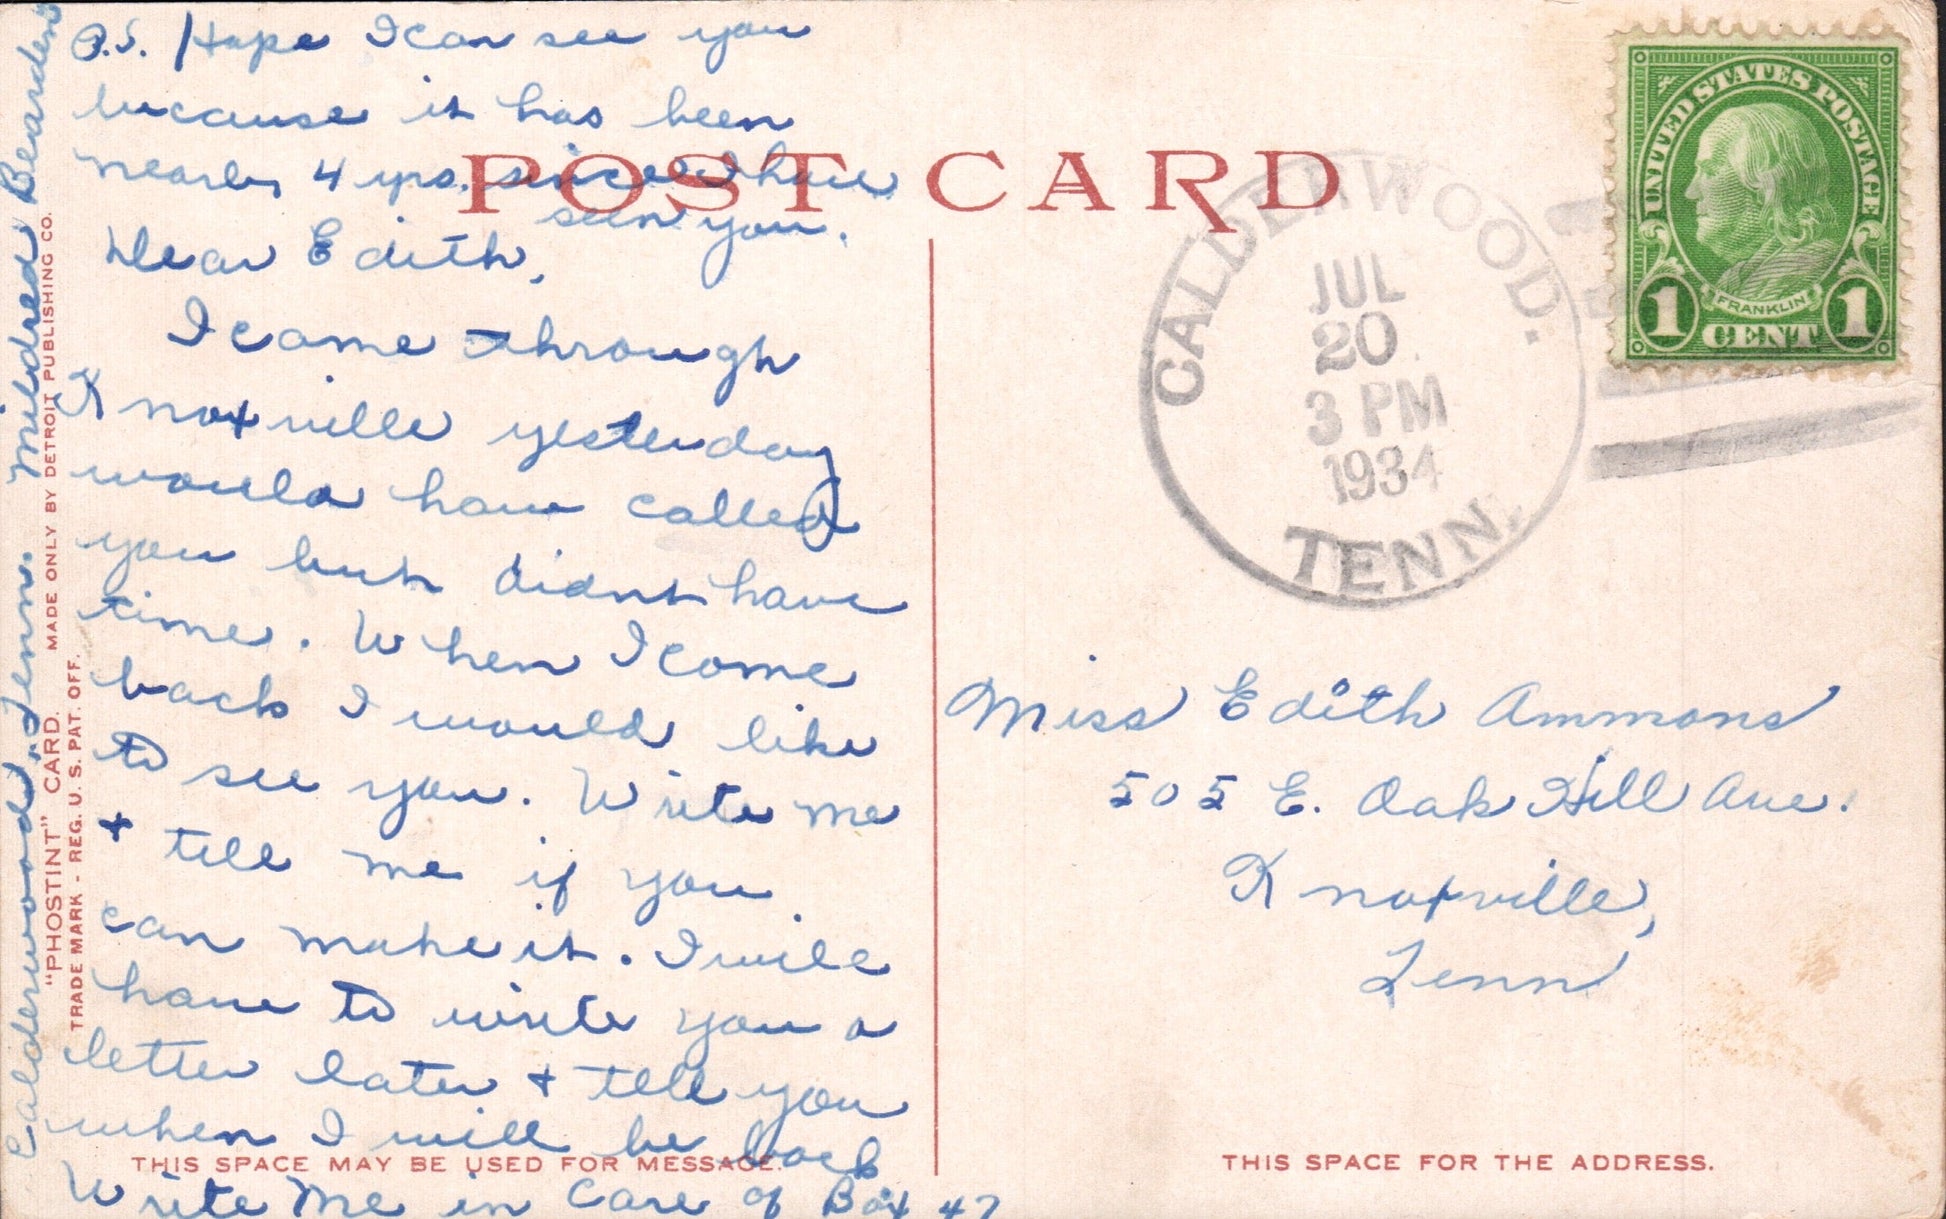 P.S. Hope I can see you
because it has been
nearly 4 yrs. since I have
seen you.
Dear Edith,
I came through
Knoxville yesterday
would have called
you but didnt have
time. When I come
back I would like
to see you. Write me
+ tell me if you
can make it. I will
have to write you a
letter later + tell you
when I will be back
Write me in care of Box 47
Calderwood, Tenn. Mildred Bearden
"PHOSTINT" CARD. MADE ONLY BY DETROIT PUBLISHING CO.
TRADE MARK - REG. U. S. PAT. OFF.
THIS SPACE MAY BE USED FOR MESSAGE.
POST CARD
CALDERWOOD.
JUL
20
3 PM
1934
TENN.
UNITED STATES POSTAGE
FRANKLIN
1 CENT 1
Miss Edith Ammons
505 E. Oak Hill Ave.
Knoxville,
Tenn
THIS SPACE FOR THE ADDRESS.